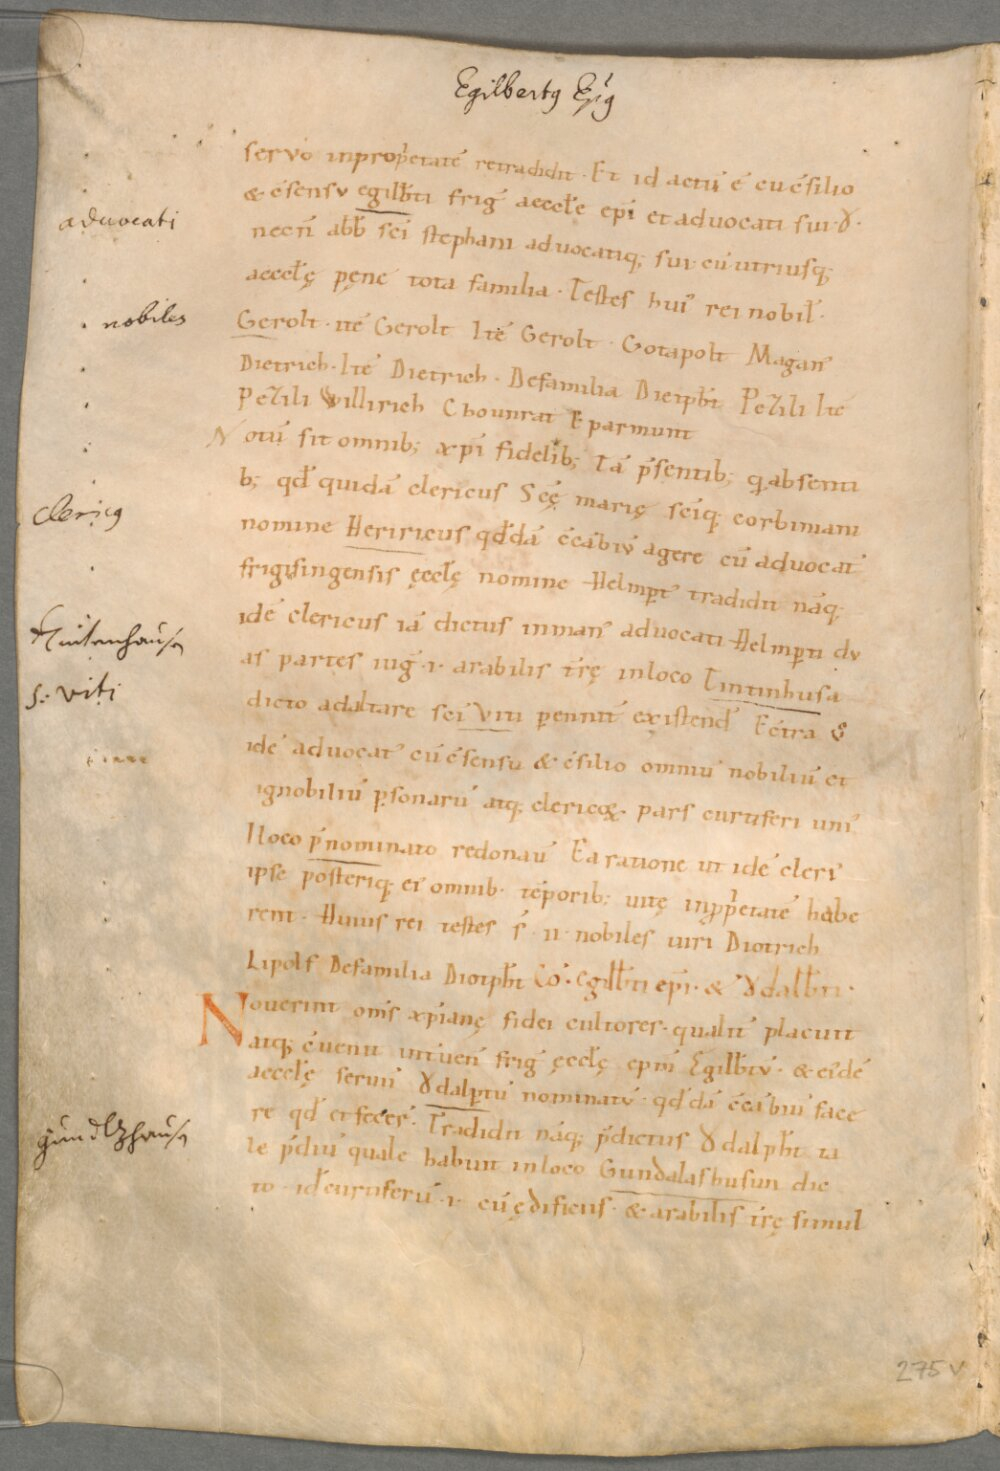 Egilbertꝰ Epꝰ
servo inprop̍etatē retradidit · Et id actū ē cu c̄silio
advocati
& c̄sensv egilb̄ti friḡ aeccłe ep̄i et advocati sui · Ɣ ·
necn̄ abb̄ sc̄i stephani advocatiq; sui · cū utriusq;
aeccłę pęne tota familia · Testes huī rei nobił ·
nobiles
Gerolt · itē Gerolt Itē Gerolt · Gotapolt Magan̄
Dietrich · Itē Dietrich · Defamilia Dietp̄ht Pezili Itē
Pezili Willirich Chounrat Eparmunt
Notū sit omnib; xp̄i fidelib; Tā p̄sentib; q absenti
b; qđ quidā clericus Sc̄ę marię sc̄iq corbiniani
clericꝰ
nomine Heriricus qđdā c̄cābiv̄ agere cū advocat̄
frigisingensis ęcclę nomine Helmp̱t tradidit nāq;
idē clericus iā dictus inman̄ advocati Helmp̱ti dv
Hintenhausn
as partes iuḡ · i · arabilis t̄rę inloco Tintinhusa
S: viti
dicto adaltare sc̄i Viti p̱ennit̄ existend̄ Ec̄tra
idē advocat̄ cū c̄sensu & c̄silio omniū nobiliū et
ignobiliū p̱sonarū atq; clericoꝝ · pars curtiferi uni
Iloco p̄nominato redonau̅ Ea ratione ut idē cleri
ipse posteriq; ei omnib · tēporib; uitę inp̱p̍etatē habe
rent · Huius rei testes s̄ · ii · nobiles uiri Diotrich
Lipolf Defamilia Diotp̄ht Cō · Egilb̄ti ep̄i · & Ɣdalb̄ti ·
Noverint om̄s xp̄ianę fidei cultores · qualit̄ placuit
atq; c̄venit int̄ ven̄ friḡ ęcclę ep̄m Egilb̄tv̄ · & ei̅dē
aecclę servū Ɣdalp̱tū nominatv̄ · qđdā c̄cābiū face
re qđ et fecer̄ · Tradidit nāq; p̄dictus Ɣdalp̄ht ta
gündlzhausn
le p̄diū quale habuit inloco Gundalashusun dic
to · id̄ curtiferū · i · cū ędificiis · & arabilis t̄rę simul
275v